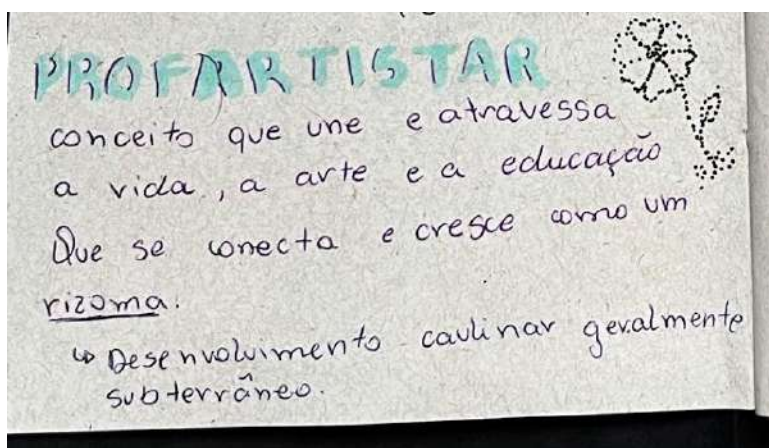 PROFARTISTAR
conceito que une e atravessa
a vida, a arte e a educação
Que se conecta e cresce como um
rizoma.
↳ Desenvolvimento caulinar geralmente
subterrâneo.